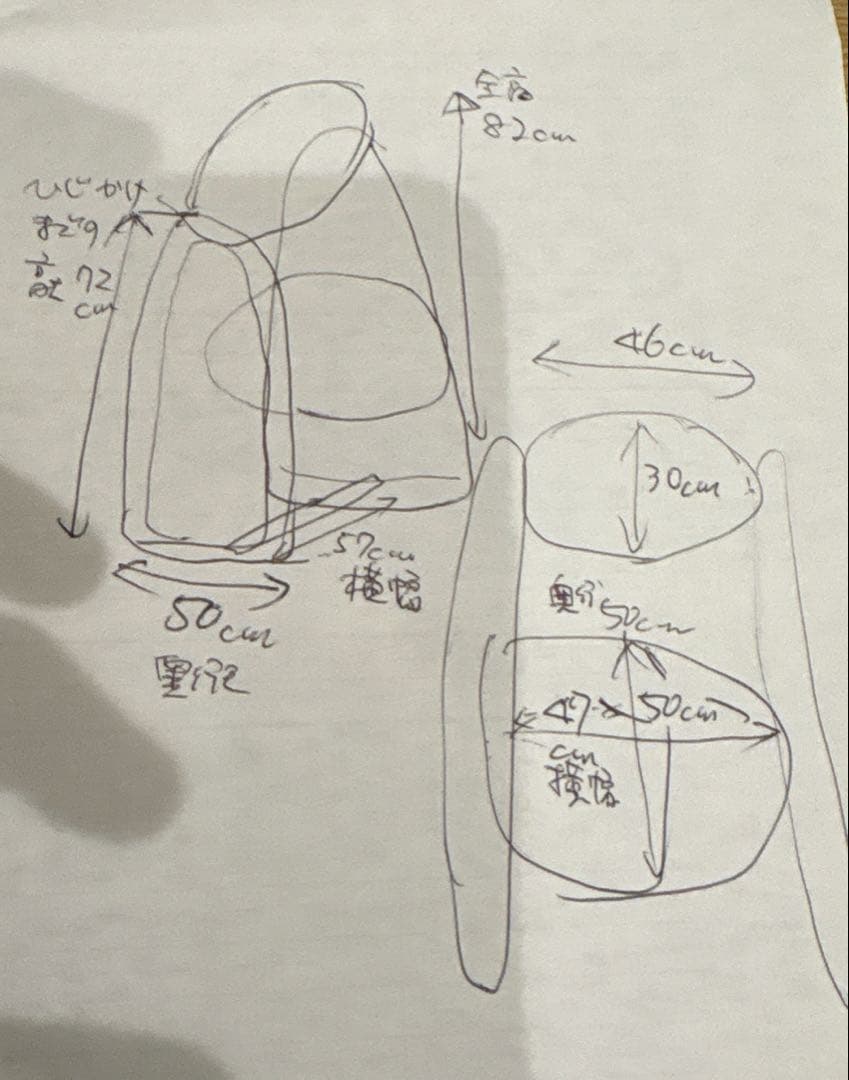 全高
82cm
ひじかけ
までの
高さ 72
cm
46cm
30cm
57cm
横幅
50cm
奥行き
奥行
50cm
47 × 50cm
cm
横幅